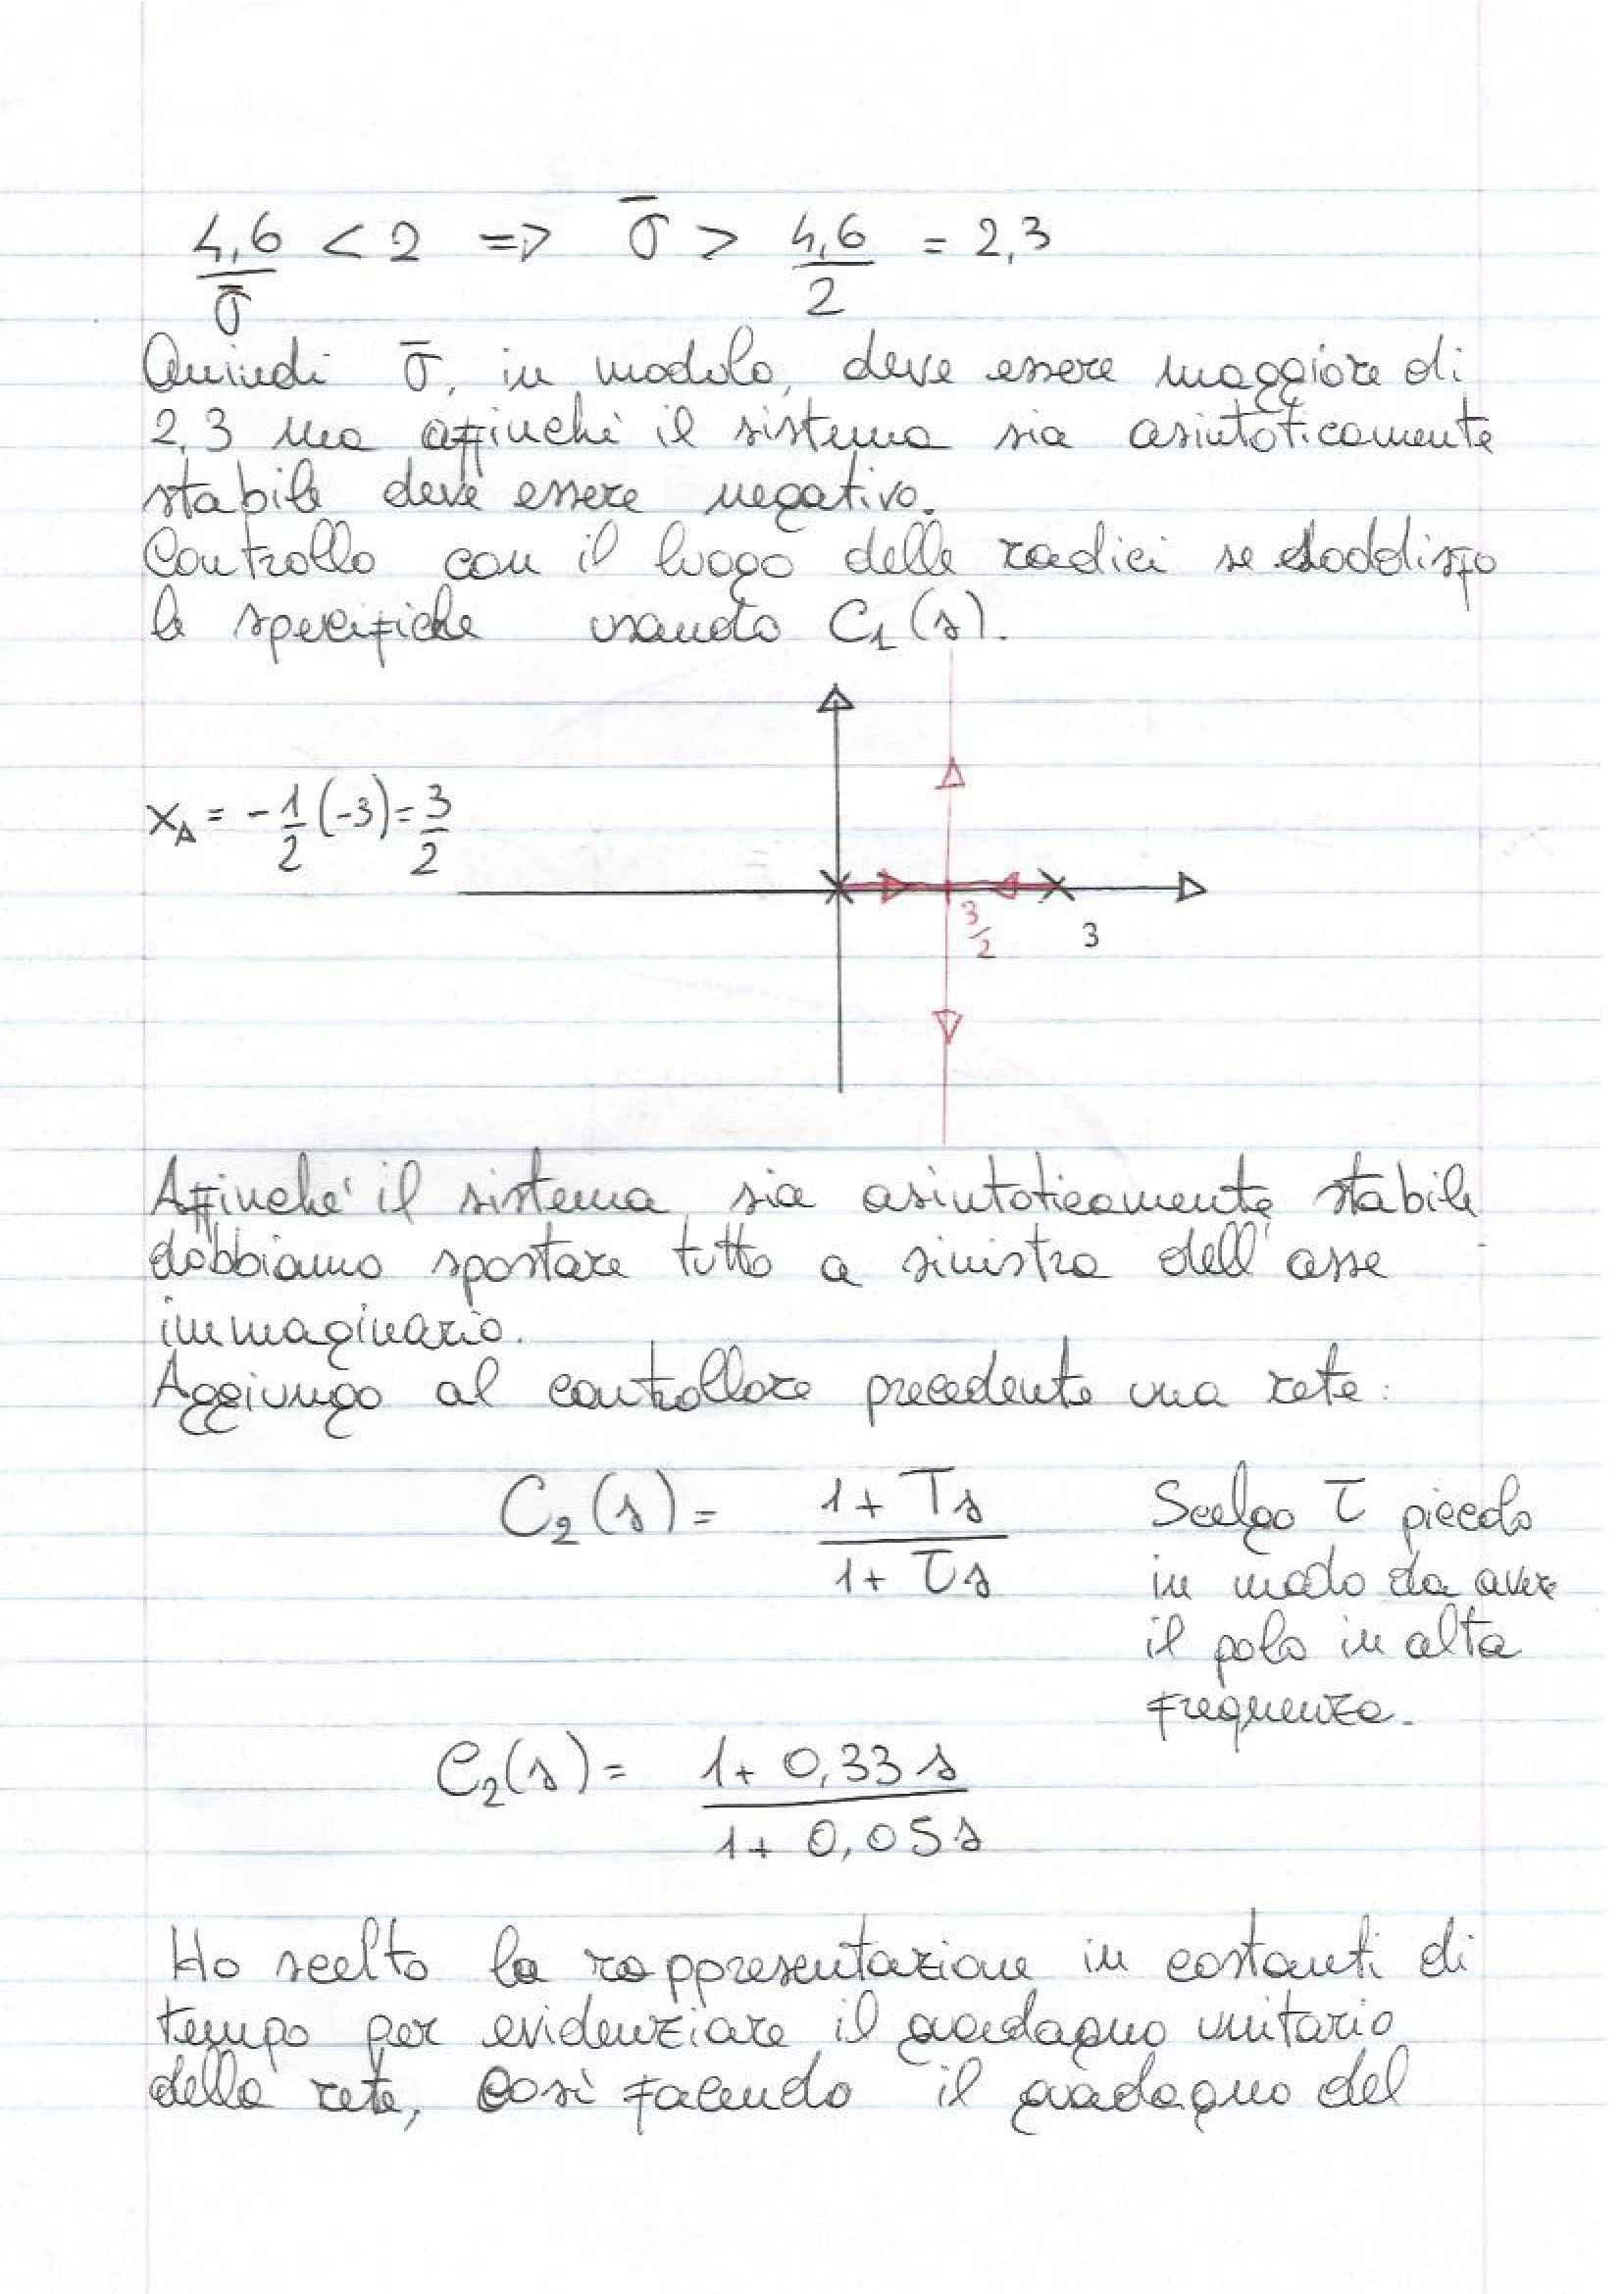 4,6/σ̄ < 2 => σ̄ > 4,6/2 = 2,3
Quindi σ̄, in modulo, deve essere maggiore di
2,3 ma affinchè il sistema sia asintoticamente
stabile deve essere negativo.
Controllo con il luogo delle radici se soddisfo
le specifiche usando C₁(s).
x_A = -1/2 (-3) = 3/2
3/2
3
Affinche' il sistema sia asintoticamente stabile
dobbiamo spostare tutto a sinistra dell'asse
immaginario.
Aggiungo al controllore precedente una rete:
C₂(s) = (1+Ts)/(1+τs)
Scelgo τ piccolo
in modo da avere
il polo in alta
frequenza.
C₂(s) = (1+0,33s)/(1+0,05s)
Ho scelto la rappresentazione in costanti di
tempo per evidenziare il guadagno unitario
della rete, così facendo il guadagno del